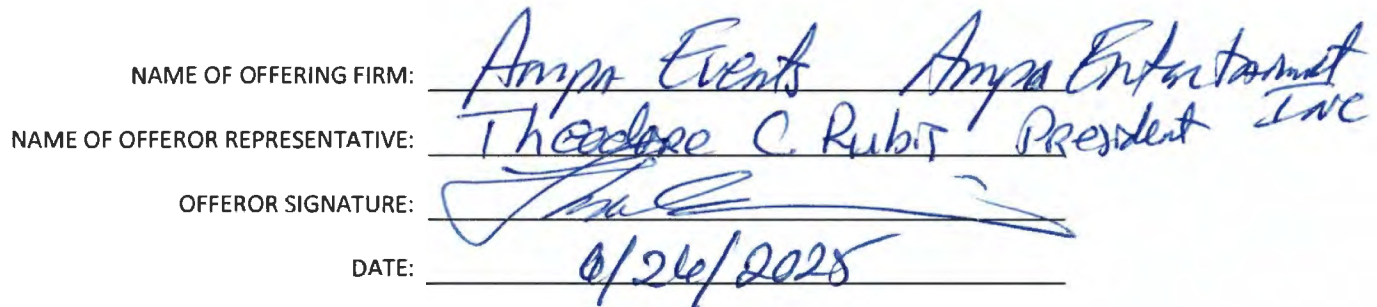 NAME OF OFFERING FIRM: Ampa Events Ampa Entertainment Inc
NAME OF OFFEROR REPRESENTATIVE: Theodore C. Rubis President
OFFEROR SIGNATURE:
DATE: 6/26/2025